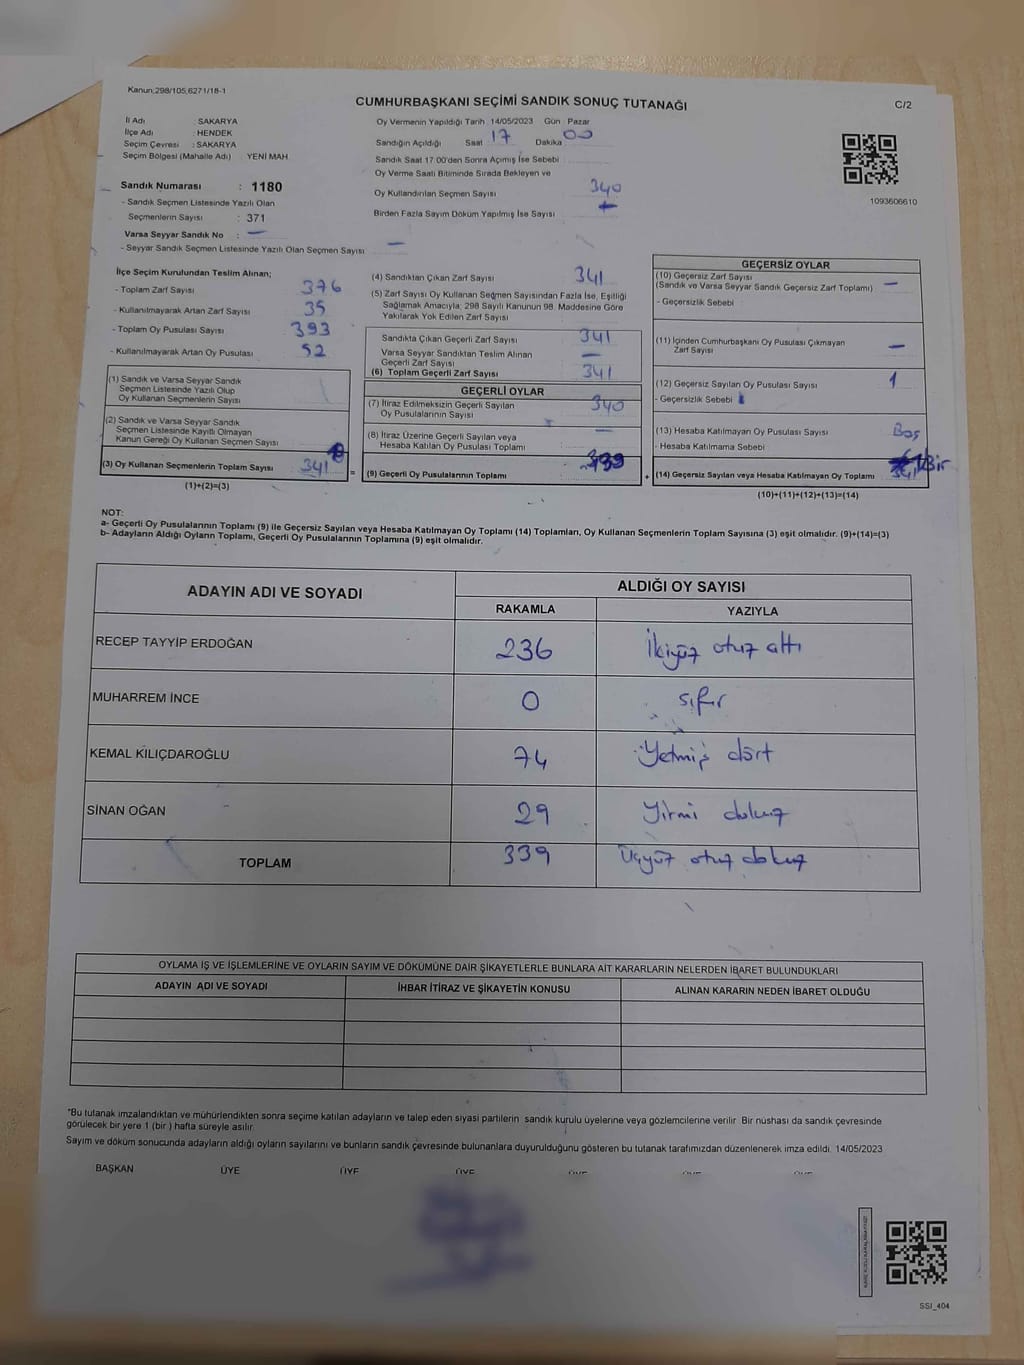 Kanun;298/105,6271/18-1
CUMHURBAŞKANI SEÇİMİ SANDIK SONUÇ TUTANAĞI
C/2
İl Adı : SAKARYA
İlçe Adı : HENDEK
Seçim Çevresi : SAKARYA
Seçim Bölgesi (Mahalle Adı) YENİ MAH.
Oy Vermenin Yapıldığı Tarih 14/05/2023 Gün : Pazar
Sandığın Açıldığı Saat 17 Dakika 00
Sandık Saat 17:00'den Sonra Açımış İse Sebebi
Oy Verme Saati Bitiminde Sırada Bekleyen ve
Oy Kullandırılan Seçmen Sayısı 340
Birden Fazla Sayım Döküm Yapılmış İse Sayısı
1093606610
Sandık Numarası : 1180
- Sandık Seçmen Listesinde Yazılı Olan
Seçmenlerin Sayısı : 371
Varsa Seyyar Sandık No : —
- Seyyar Sandık Seçmen Listesinde Yazılı Olan Seçmen Sayısı —
İlçe Seçim Kurulundan Teslim Alınan;
- Toplam Zarf Sayısı 376
- Kullanılmayarak Artan Zarf Sayısı 35
- Toplam Oy Pusulası Sayısı 393
- Kullanılmayarak Artan Oy Pusulası 52
(1) Sandık ve Varsa Seyyar Sandık
Seçmen Listesinde Yazılı Olup
Oy Kullanan Seçmenlerin Sayısı
(2) Sandık ve Varsa Seyyar Sandık
Seçmen Listesinde Kayıtlı Olmayan
Kanun Gereği Oy Kullanan Seçmen Sayısı
(3) Oy Kullanan Seçmenlerin Toplam Sayısı 341
(1)+(2)=(3)
(4) Sandıktan Çıkan Zarf Sayısı 341
(5) Zarf Sayısı Oy Kullanan Seçmen Sayısından Fazla İse, Eşitliği
Sağlamak Amacıyla; 298 Sayılı Kanunun 98. Maddesine Göre
Yakılarak Yok Edilen Zarf Sayısı
Sandıkta Çıkan Geçerli Zarf Sayısı 341
Varsa Seyyar Sandıktan Teslim Alınan
Geçerli Zarf Sayısı —
(6) Toplam Geçerli Zarf Sayısı 341
GEÇERLİ OYLAR
(7) İtiraz Edilmeksizin Geçerli Sayılan
Oy Pusulalarının Sayısı 340
(8) İtiraz Üzerine Geçerli Sayılan veya
Hesaba Katılan Oy Pusulaları Toplamı —
= (9) Geçerli Oy Pusulalarının Toplamı 339
GEÇERSİZ OYLAR
(10) Geçersiz Zarf Sayısı
(Sandık ve Varsa Seyyar Sandık Geçersiz Zarf Toplamı) —
- Geçersizlik Sebebi
(11) İçinden Cumhurbaşkanı Oy Pusulası Çıkmayan
Zarf Sayısı —
(12) Geçersiz Sayılan Oy Pusulası Sayısı 1
- Geçersizlik Sebebi
(13) Hesaba Katılmayan Oy Pusulası Sayısı Boş
- Hesaba Katılmama Sebebi
+ (14) Geçersiz Sayılan veya Hesaba Katılmayan Oy Toplamı Bir
(10)+(11)+(12)+(13)=(14)
NOT:
a- Geçerli Oy Pusulalarının Toplamı (9) ile Geçersiz Sayılan veya Hesaba Katılmayan Oy Toplamı (14) Toplamları, Oy Kullanan Seçmenlerin Toplam Sayısına (3) eşit olmalıdır. (9)+(14)=(3)
b- Adayların Aldığı Oyların Toplamı, Geçerli Oy Pusulalarının Toplamına (9) eşit olmalıdır.
ADAYIN ADI VE SOYADI
ALDIĞI OY SAYISI
RAKAMLA YAZIYLA
RECEP TAYYİP ERDOĞAN 236 İkiyüz otuz altı
MUHARREM İNCE 0 sıfır
KEMAL KILIÇDAROĞLU 74 Yetmiş dört
SİNAN OĞAN 29 Yirmi dokuz
TOPLAM 339 Üçyüz otuz dokuz
OYLAMA İŞ VE İŞLEMLERİNE VE OYLARIN SAYIM VE DÖKÜMÜNE DAİR ŞİKAYETLERLE BUNLARA AİT KARARLARIN NELERDEN İBARET BULUNDUKLARI
ADAYIN ADI VE SOYADI İHBAR İTİRAZ VE ŞİKAYETİN KONUSU ALINAN KARARIN NEDEN İBARET OLDUĞU
"Bu tutanak imzalandıktan ve mühürlendikten sonra seçime katılan adayların ve talep eden siyasi partilerin sandık kurulu üyelerine veya gözlemcilerine verilir. Bir nüshası da sandık çevresinde
görülecek bir yere 1 (bir ) hafta süreyle asılır.
Sayım ve döküm sonucunda adayların aldığı oyların sayılarını ve bunların sandık çevresinde bulunanlara duyurulduğunu gösteren bu tutanak tarafımızdan düzenlenerek imza edildi. 14/05/2023
BAŞKAN ÜYE ÜYE ÜYE ÜYE ÜYE ÜYE
SSI_404